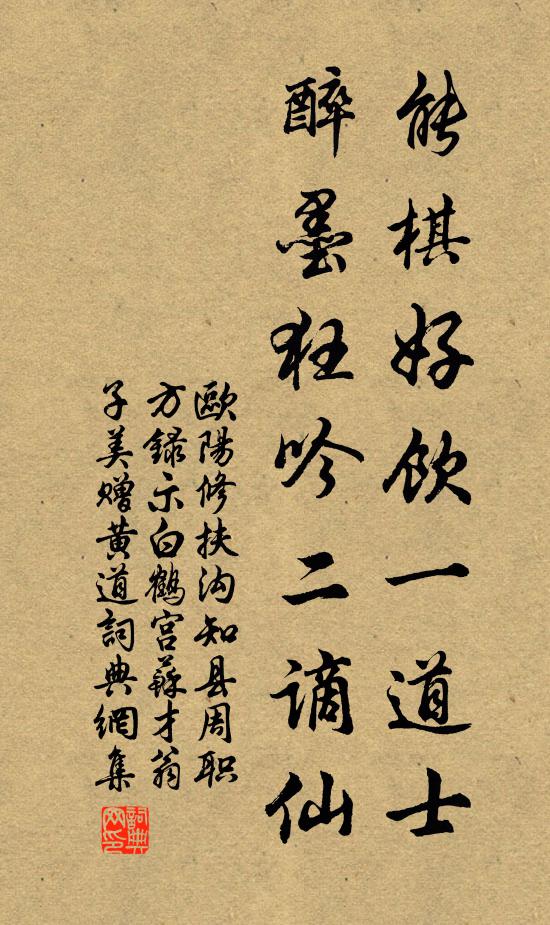 能棋好飲一道士
醉墨狂吟二謫仙
歐陽修扶沟知县周职
方録示白鶴宮蘇才翁
子美赠黄道詞典網集
詞典网印